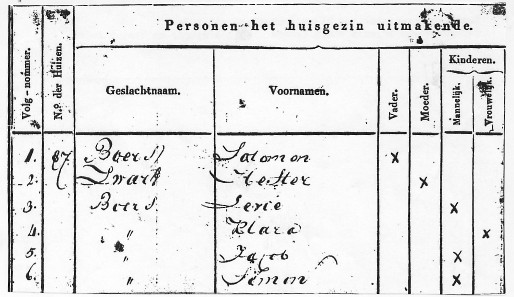 Personen het huisgezin uitmakende.
Volg-nommer. N.º der Huizen. Geslachtnaam. Voornamen. Vader. Moeder. Kinderen.
Mannelijk. Vrouwelijk.
1. 87 Boers Salomon x
2. Swart Hester x
3. Boers Levie x
4. " Klara x
5. " Jacob x
6. " Simon x